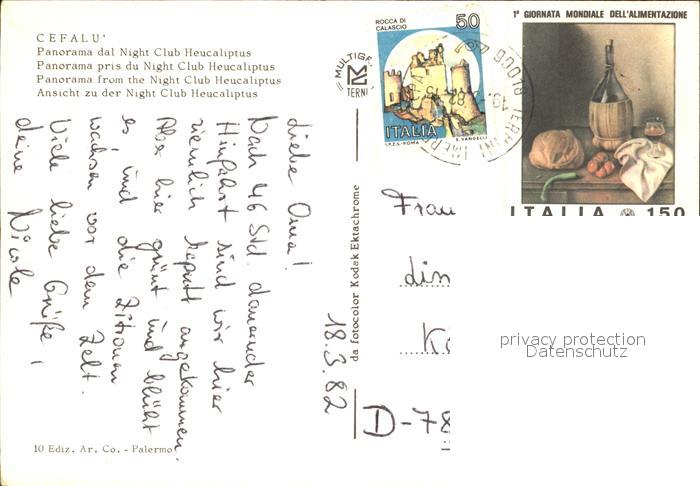 CEFALU'
Panorama dal Night Club Heucaliptus
Panorama pris du Night Club Heucaliptus
Panorama from the Night Club Heucaliptus
Ansicht zu der Night Club Heucaliptus
MULTIGR.
TERNI
ROCCA DI
CALASCIO
50
ITALIA
I.P.Z.S.-ROMA E. VANGELLI
1ª GIORNATA MONDIALE DELL'ALIMENTAZIONE
ITALIA 150
90018 TERMINI
18.3.82
Liebe Oma!
Nach 46 Std. dauernder
Hinfahrt sind wir hier
ziemlich kaputt angekommen.
Aber hier grünt und blüht
es, und die Zitronen
wachsen vor dem Zelt.
Viele liebe Grüße,
deine Nicole
da fotocolor Kodak Ektachrome
Frau
D-78
10 Ediz. Ar. Co. - Palermo
privacy protection
Datenschutz